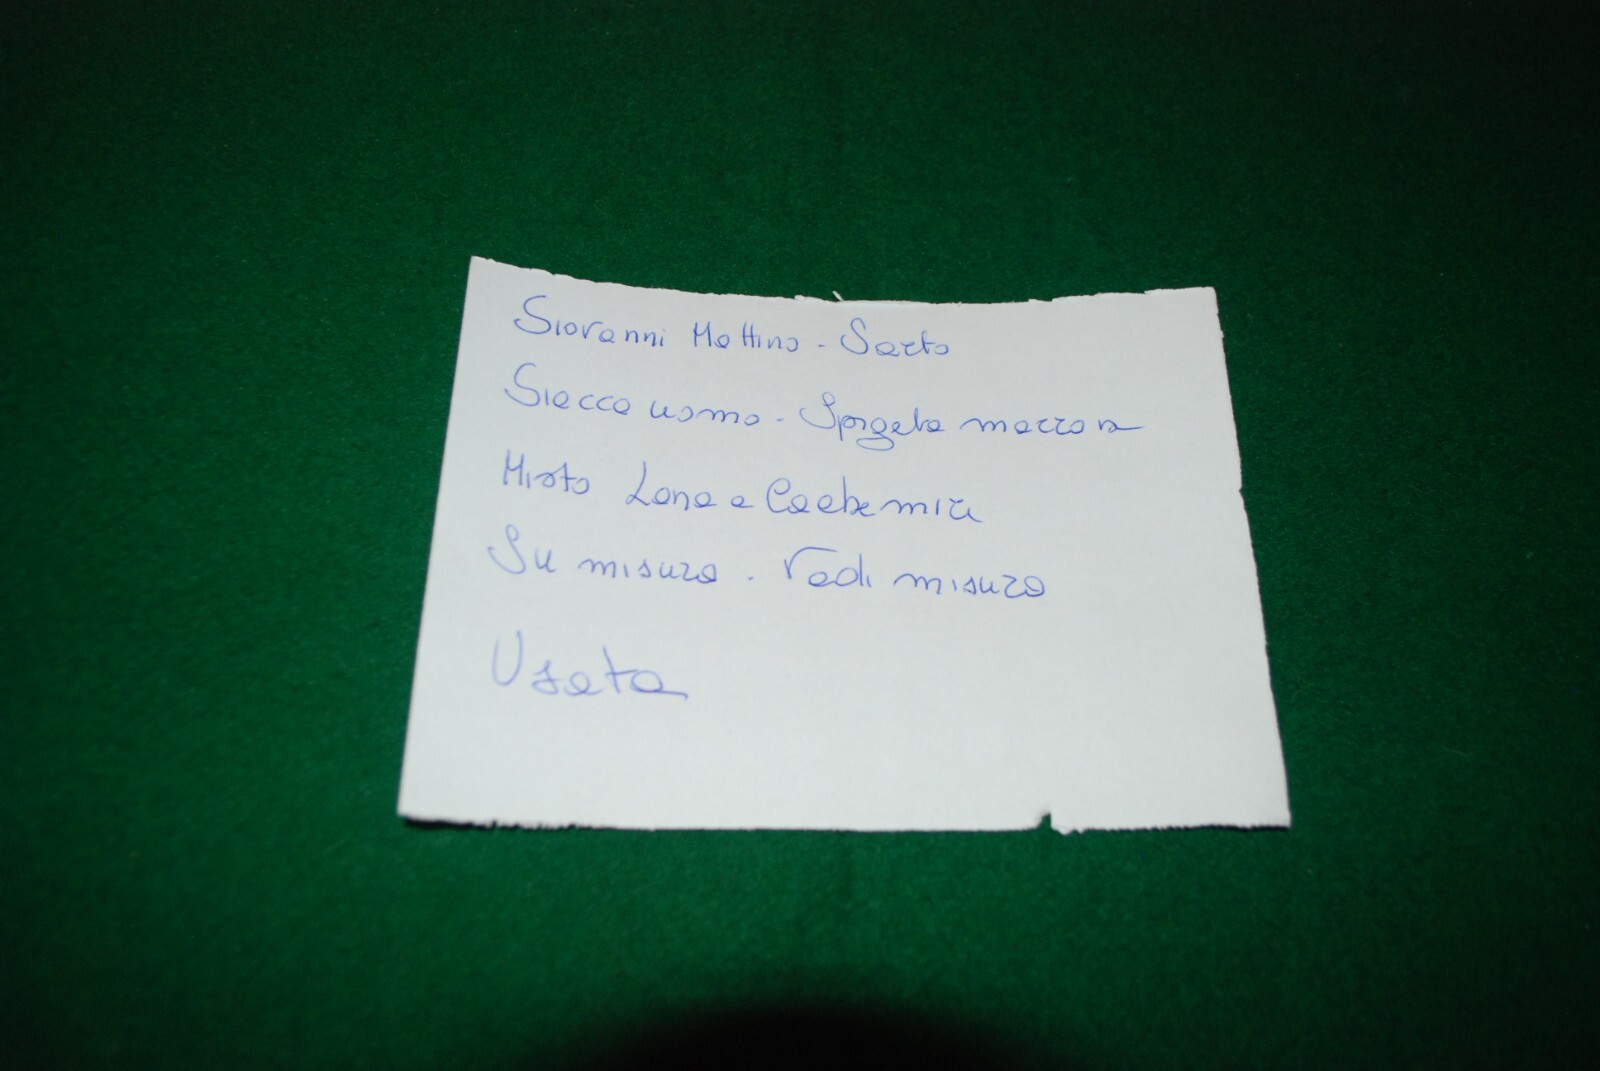 Giovanni Mattino - Sarto
Giacca uomo - Spigata marrone
Misto Lana e Cachemire
Su misura. Vedi misura
Usata